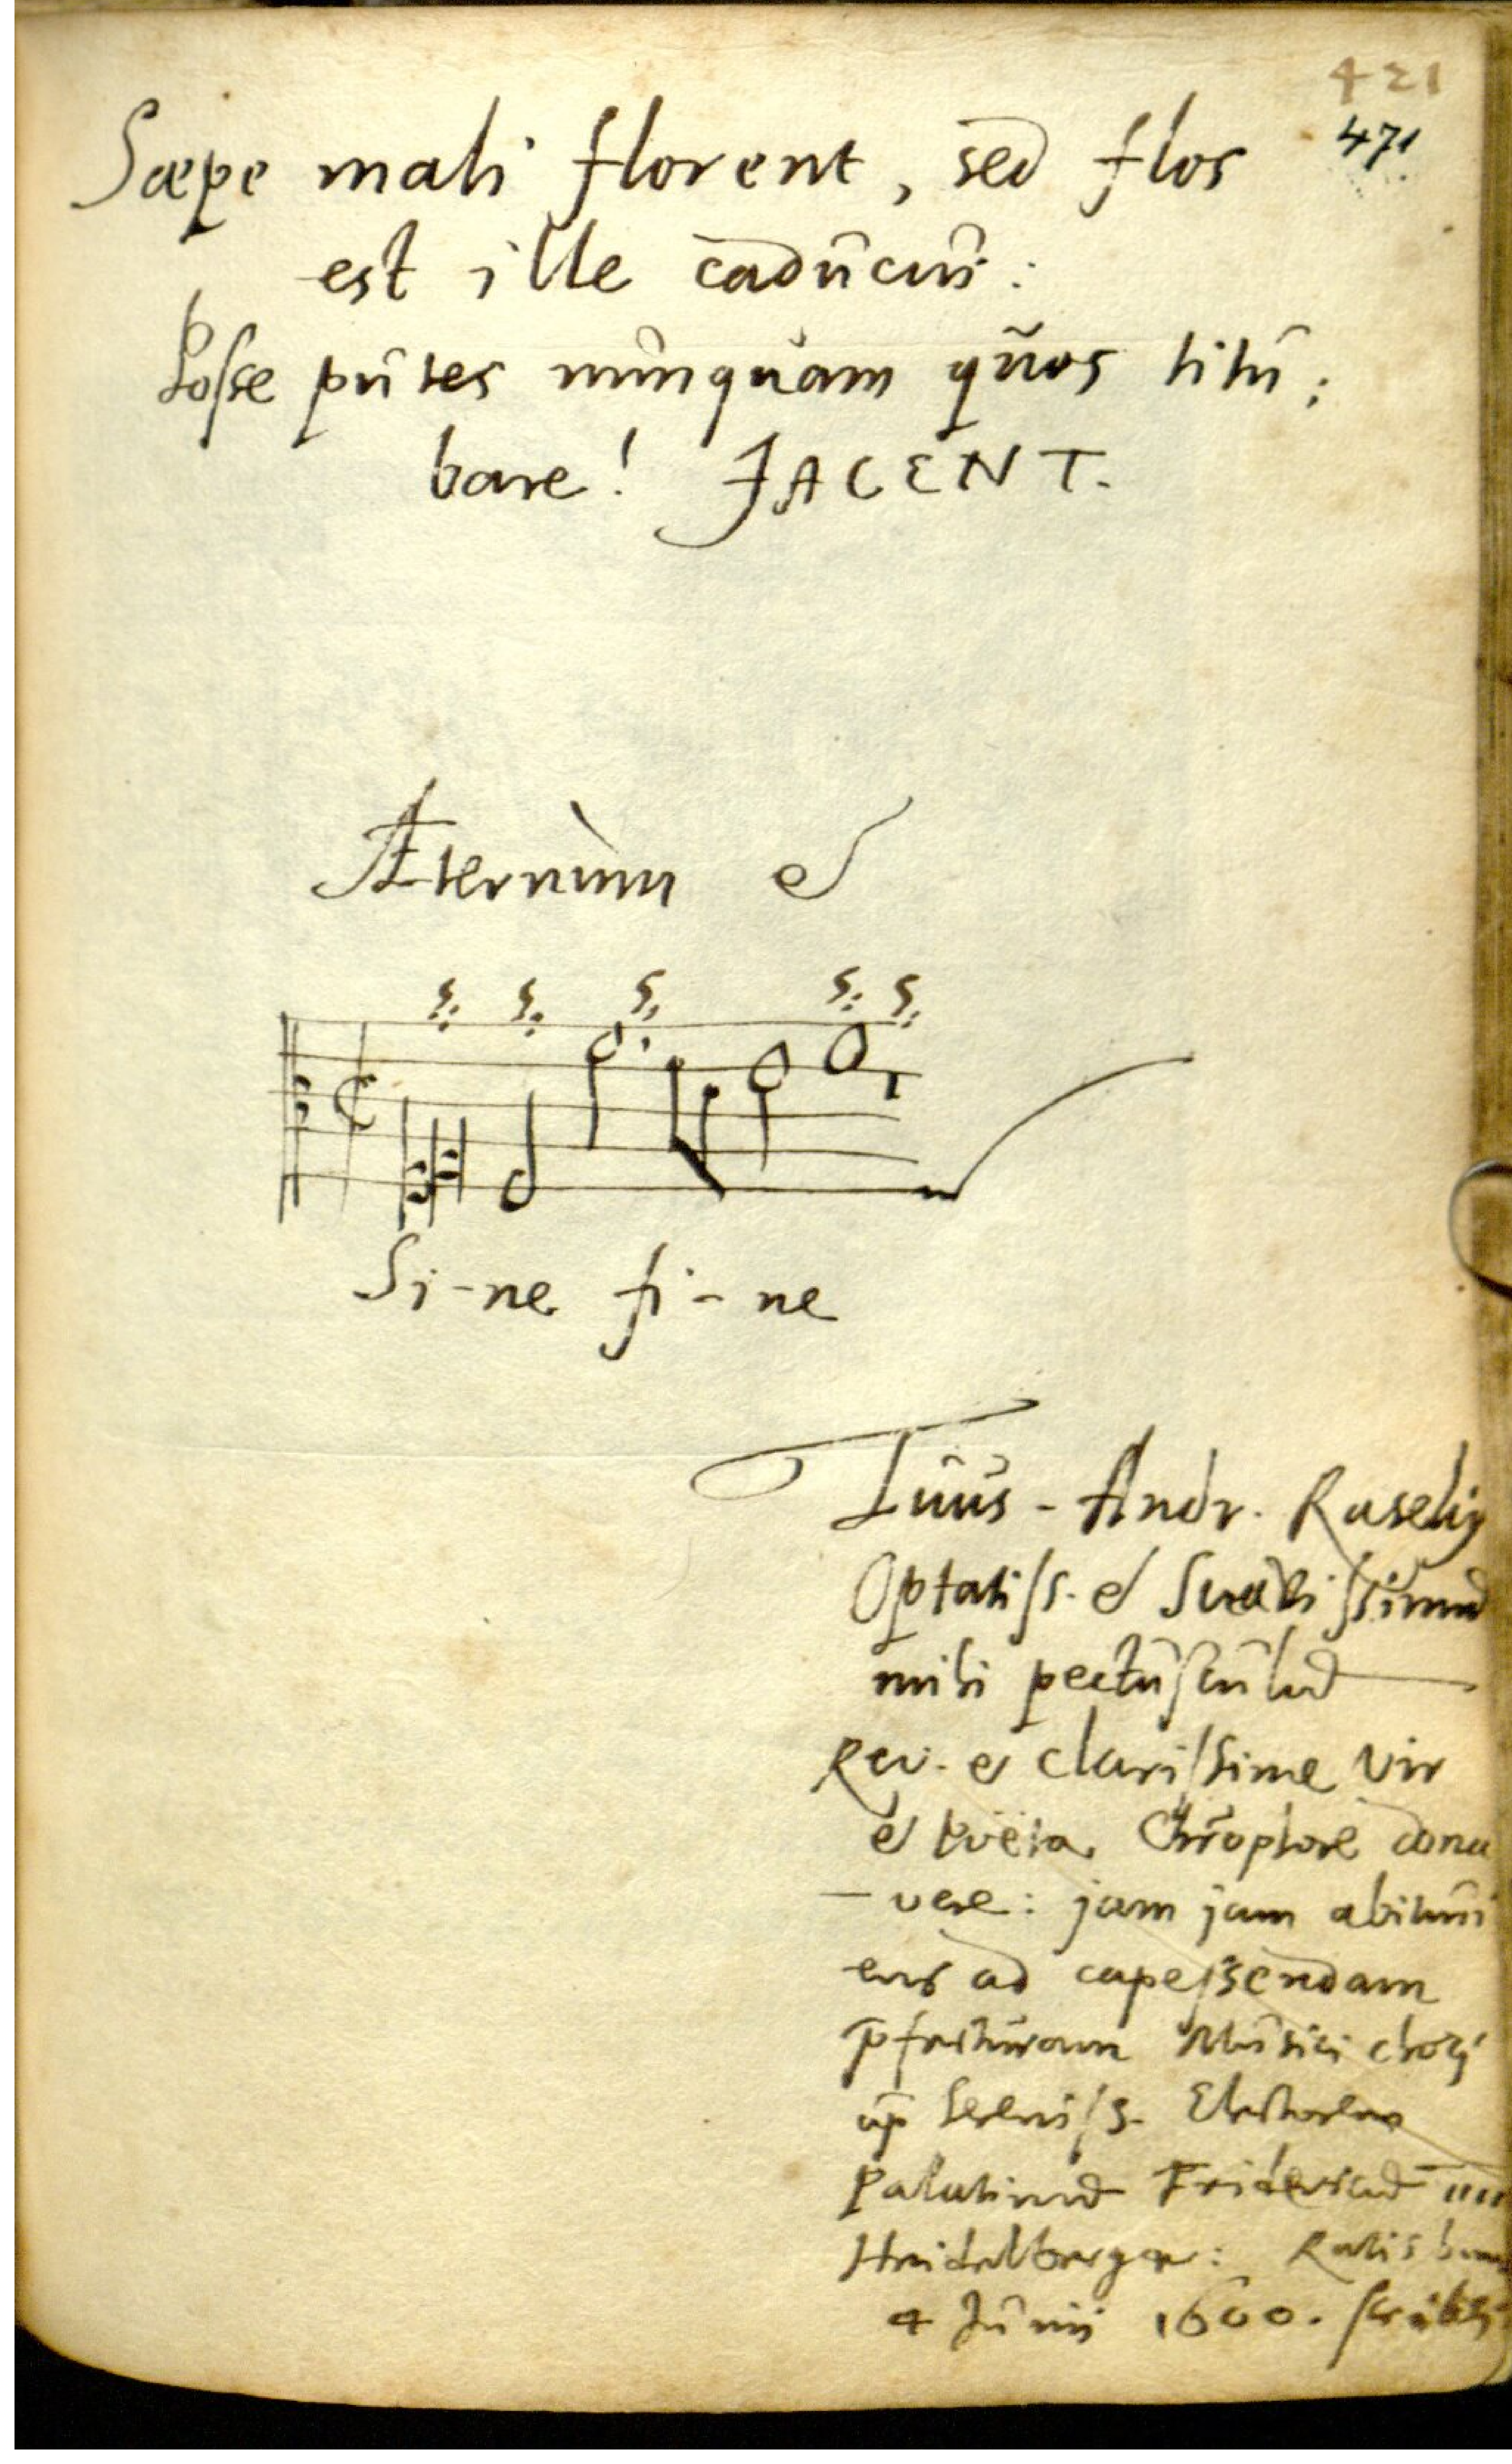 421
471
Sæpe mali florent, sed flos
est ille caducus:
Posse putes nunquam quos titu:
bare! JACENT.
Æternùm &
Si-ne fi-ne
Tuus - Andr. Raselig
Optatiss. & Suavissimud
mihi pectusculud
Rev. & clarissime vir
& Poëta Chr̄ophore Dona
-vere: jam jam abituri
ens ad capessendam
p̄fecturam Musici chori
ap Sereniss. Electorem
Palatinud Fridericud IIII
Heidelbergæ: Ratisbonæ
4 Junii 1600. scribeb